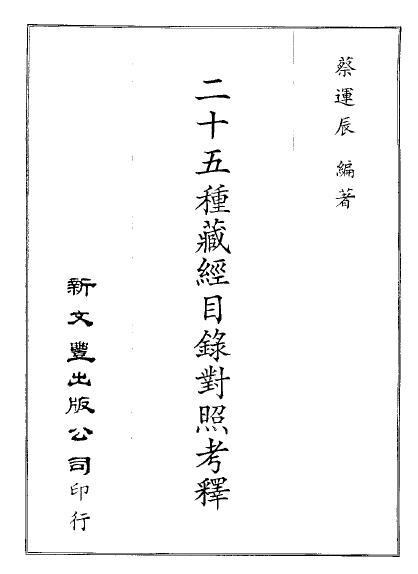 蔡運辰 編著
二十五種藏經目錄對照考釋
新文豐出版公司印行